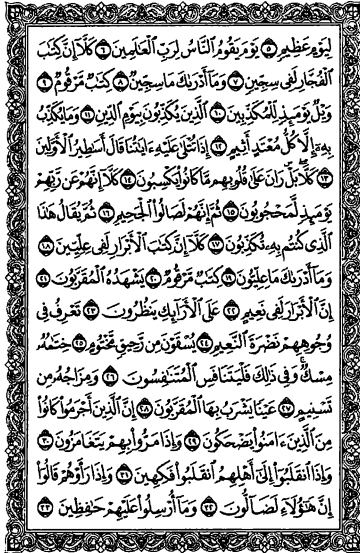 لِيَوْمٍ عَظِيمٍ ٥ يَوْمَ يَقُومُ ٱلنَّاسُ لِرَبِّ ٱلْعَٰلَمِينَ ٦ كَلَّآ إِنَّ كِتَٰبَ
ٱلْفُجَّارِ لَفِى سِجِّينٍ ٧ وَمَآ أَدْرَىٰكَ مَا سِجِّينٌ ٨ كِتَٰبٌ مَّرْقُومٌ ٩
وَيْلٌ يَوْمَئِذٍ لِّلْمُكَذِّبِينَ ١٠ ٱلَّذِينَ يُكَذِّبُونَ بِيَوْمِ ٱلدِّينِ ١١ وَمَا يُكَذِّبُ
بِهِۦٓ إِلَّا كُلُّ مُعْتَدٍ أَثِيمٍ ١٢ إِذَا تُتْلَىٰ عَلَيْهِ ءَايَٰتُنَا قَالَ أَسَٰطِيرُ ٱلْأَوَّلِينَ
١٣ كَلَّا بَلْ رَانَ عَلَىٰ قُلُوبِهِم مَّا كَانُوا۟ يَكْسِبُونَ ١٤ كَلَّآ إِنَّهُمْ عَن رَّبِّهِمْ
يَوْمَئِذٍ لَّمَحْجُوبُونَ ١٥ ثُمَّ إِنَّهُمْ لَصَالُوا۟ ٱلْجَحِيمِ ١٦ ثُمَّ يُقَالُ هَٰذَا
ٱلَّذِى كُنتُم بِهِۦ تُكَذِّبُونَ ١٧ كَلَّآ إِنَّ كِتَٰبَ ٱلْأَبْرَارِ لَفِى عِلِّيِّينَ ١٨
وَمَآ أَدْرَىٰكَ مَا عِلِّيُّونَ ١٩ كِتَٰبٌ مَّرْقُومٌ ٢٠ يَشْهَدُهُ ٱلْمُقَرَّبُونَ ٢١
إِنَّ ٱلْأَبْرَارَ لَفِى نَعِيمٍ ٢٢ عَلَى ٱلْأَرَآئِكِ يَنظُرُونَ ٢٣ تَعْرِفُ فِى
وُجُوهِهِمْ نَضْرَةَ ٱلنَّعِيمِ ٢٤ يُسْقَوْنَ مِن رَّحِيقٍ مَّخْتُومٍ ٢٥ خِتَٰمُهُۥ
مِسْكٌ وَفِى ذَٰلِكَ فَلْيَتَنَافَسِ ٱلْمُتَنَٰفِسُونَ ٢٦ وَمِزَاجُهُۥ مِن
تَسْنِيمٍ ٢٧ عَيْنًا يَشْرَبُ بِهَا ٱلْمُقَرَّبُونَ ٢٨ إِنَّ ٱلَّذِينَ أَجْرَمُوا۟ كَانُوا۟
مِنَ ٱلَّذِينَ ءَامَنُوا۟ يَضْحَكُونَ ٢٩ وَإِذَا مَرُّوا۟ بِهِمْ يَتَغَامَزُونَ ٣٠
وَإِذَا ٱنقَلَبُوٓا۟ إِلَىٰٓ أَهْلِهِمُ ٱنقَلَبُوا۟ فَكِهِينَ ٣١ وَإِذَا رَأَوْهُمْ قَالُوٓا۟
إِنَّ هَٰٓؤُلَآءِ لَضَآلُّونَ ٣٢ وَمَآ أُرْسِلُوا۟ عَلَيْهِمْ حَٰفِظِينَ ٣٣